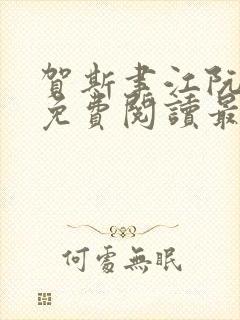 賀斯書江阮
免費閱讀最
何處無眠